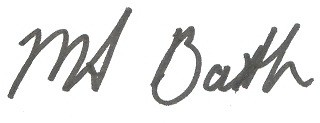 MS Barth